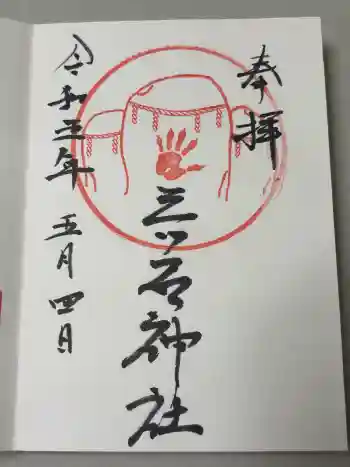 奉拝
三ツ石神社
令和三年 五月四日